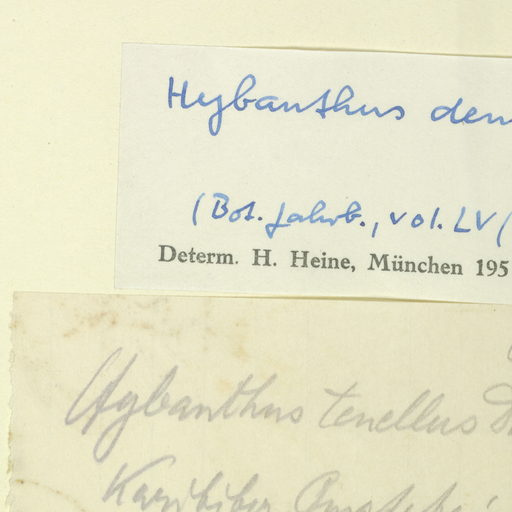 Hybanthus den
(Bot. Jahrb., vol. LV (
Determ. H. Heine, München 195
Hybanthus tenellus
Karibiber